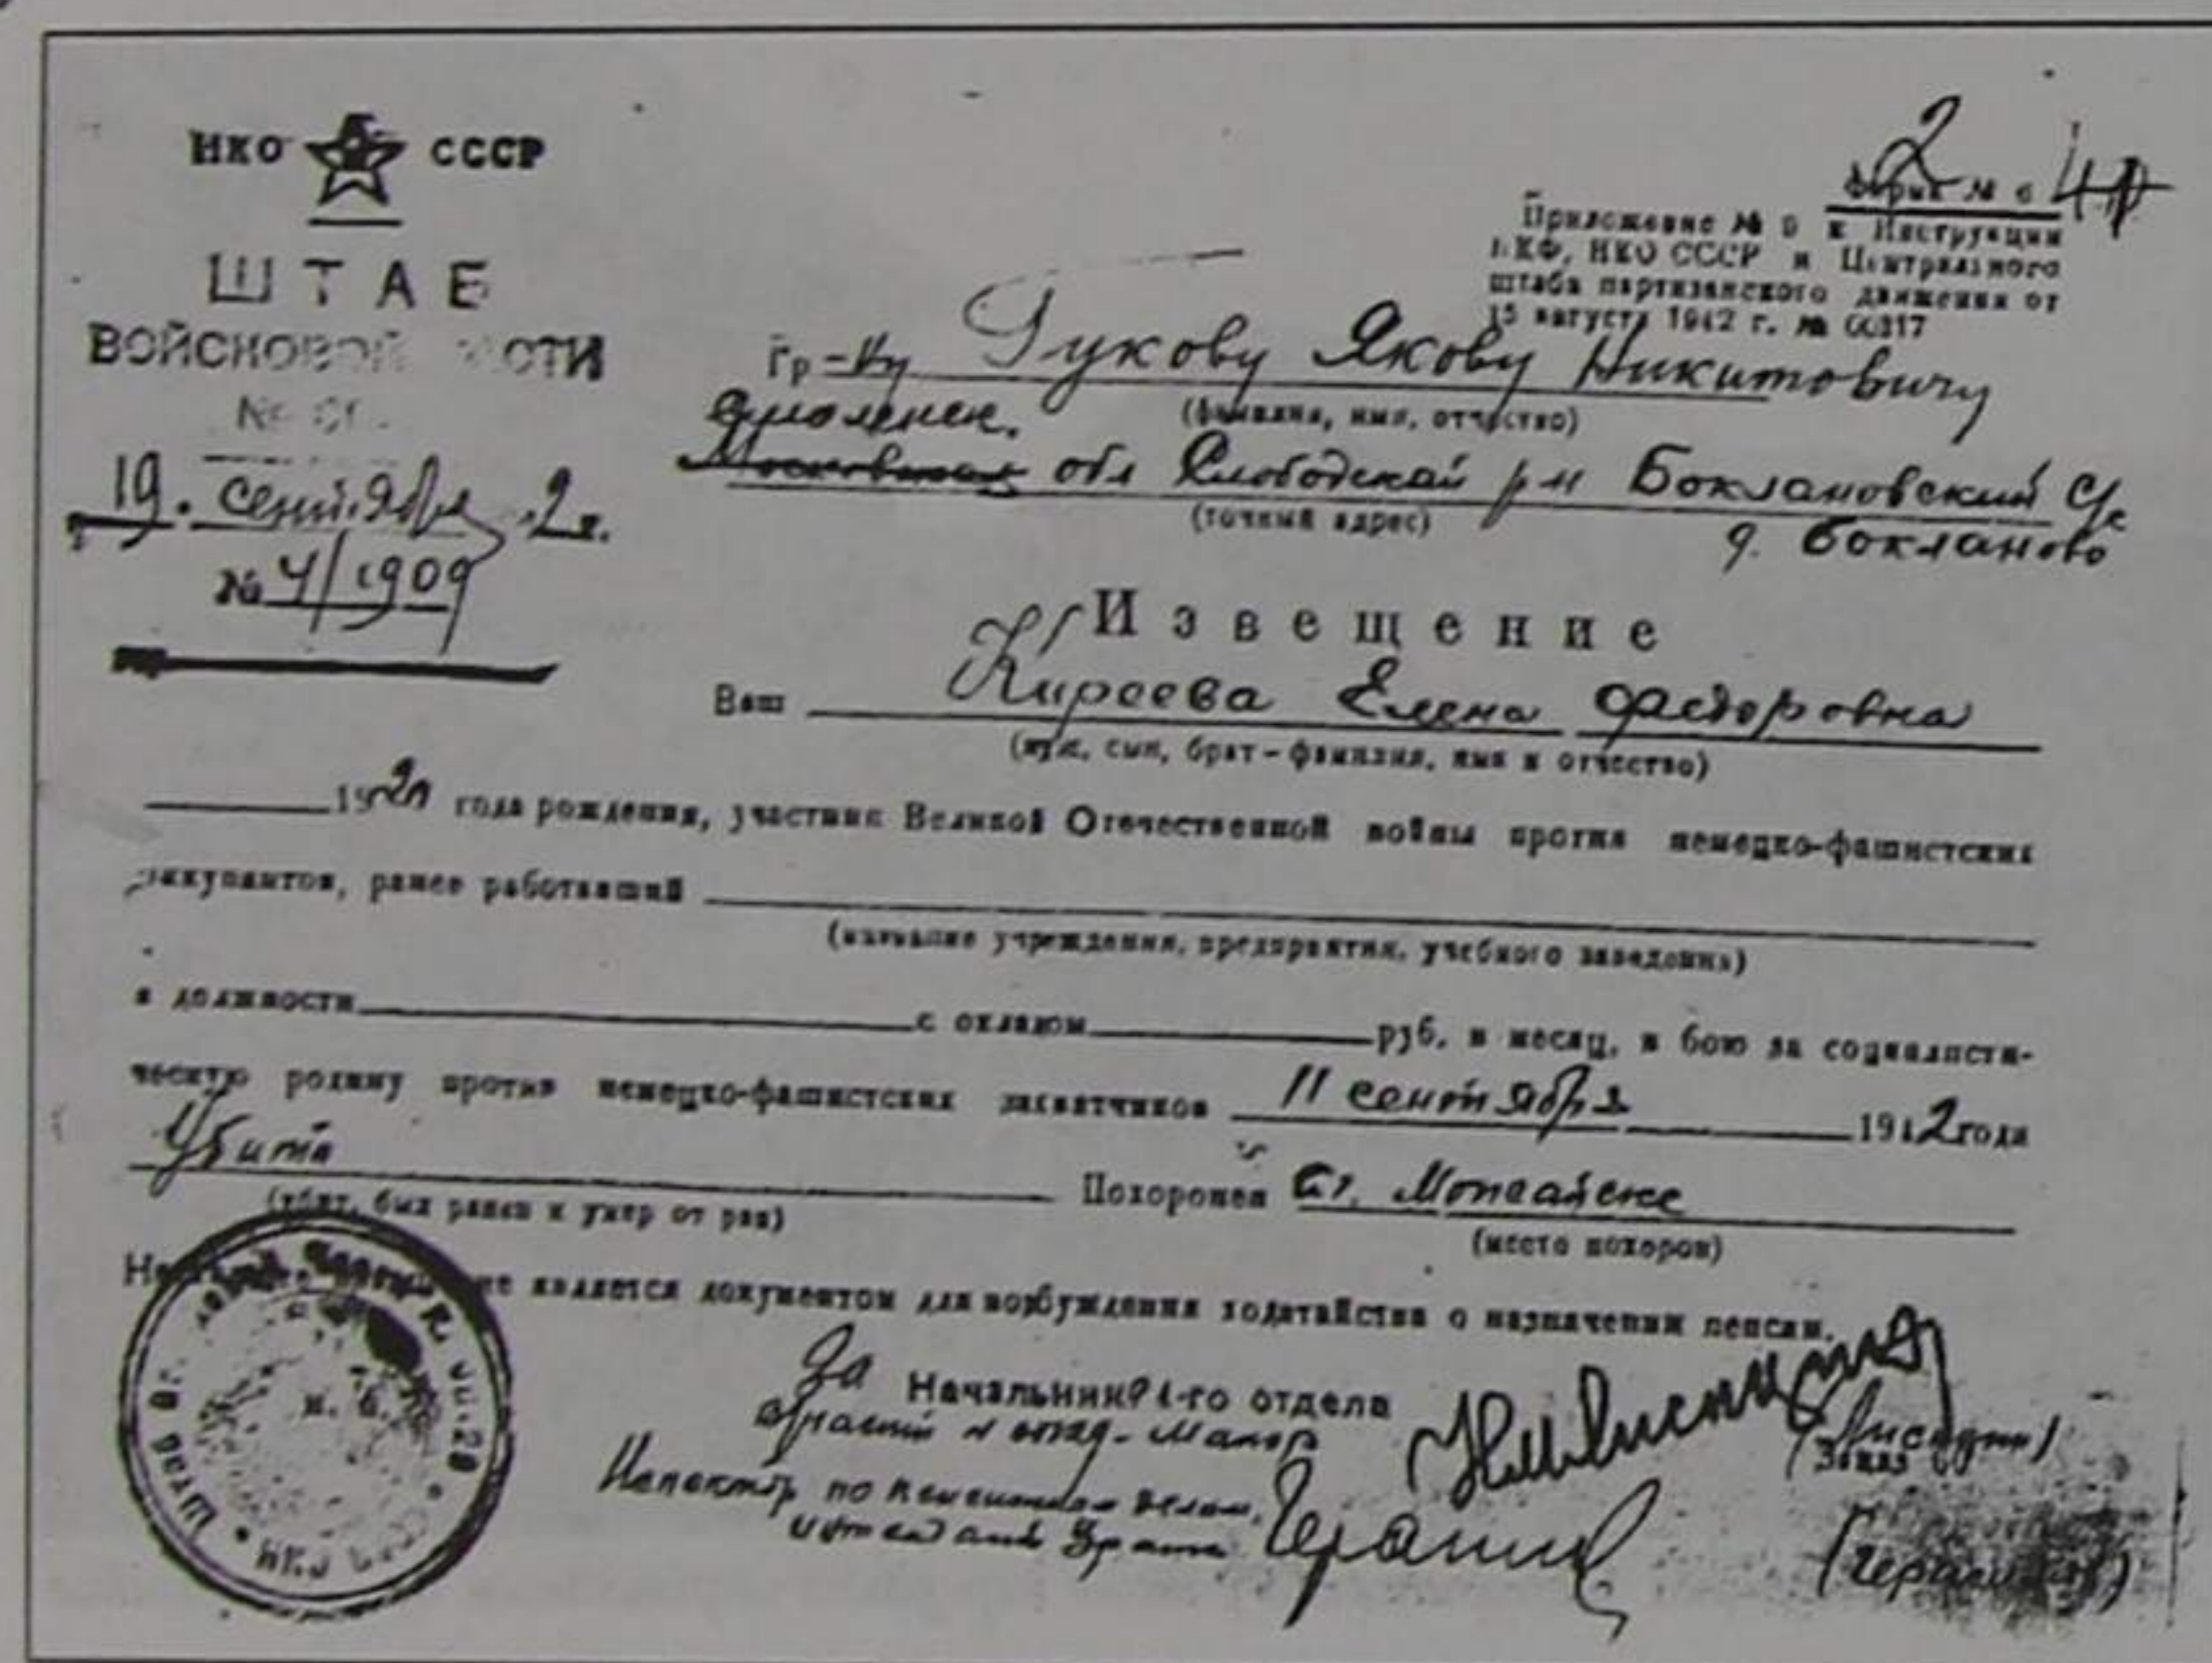 НКО СССР
ШТАБ
ВОЙСКОВОЙ ЧАСТИ
19. сентября 2 г.
№ 4/1909
2
Форма № 6
Приложение № 9 к Инструкции
НКФ, НКО СССР и Центрального
штаба партизанского движения от
15 августа 1942 г. № 00317
Гр-ну Гукову Якову Никитовичу
(фамилия, имя, отчество)
Смоленск.
Московская обл Слободской р-н Бокановский с/с
(точный адрес)
д. Бокланово
Извещение
Ваш Киреева Елена Федоровна
(муж, сын, брат - фамилия, имя и отчество)
года рождения, участник Великой Отечественной войны против немецко-фашистских
оккупантов, ранее работавший
(название учреждения, предприятия, учебного заведения)
в должности с окладом руб. в месяц, в бою за социалисти-
ческую родину против немецко-фашистских захватчиков 11 сентября 1942 года
Убита Похоронен ст. Можайске
(убит, был ранен и умер от ран) (место похорон)
является документом для возбуждения ходатайства о назначении пенсии.
За Начальник 1-го отдела
Инспектор по пенсионным делам,